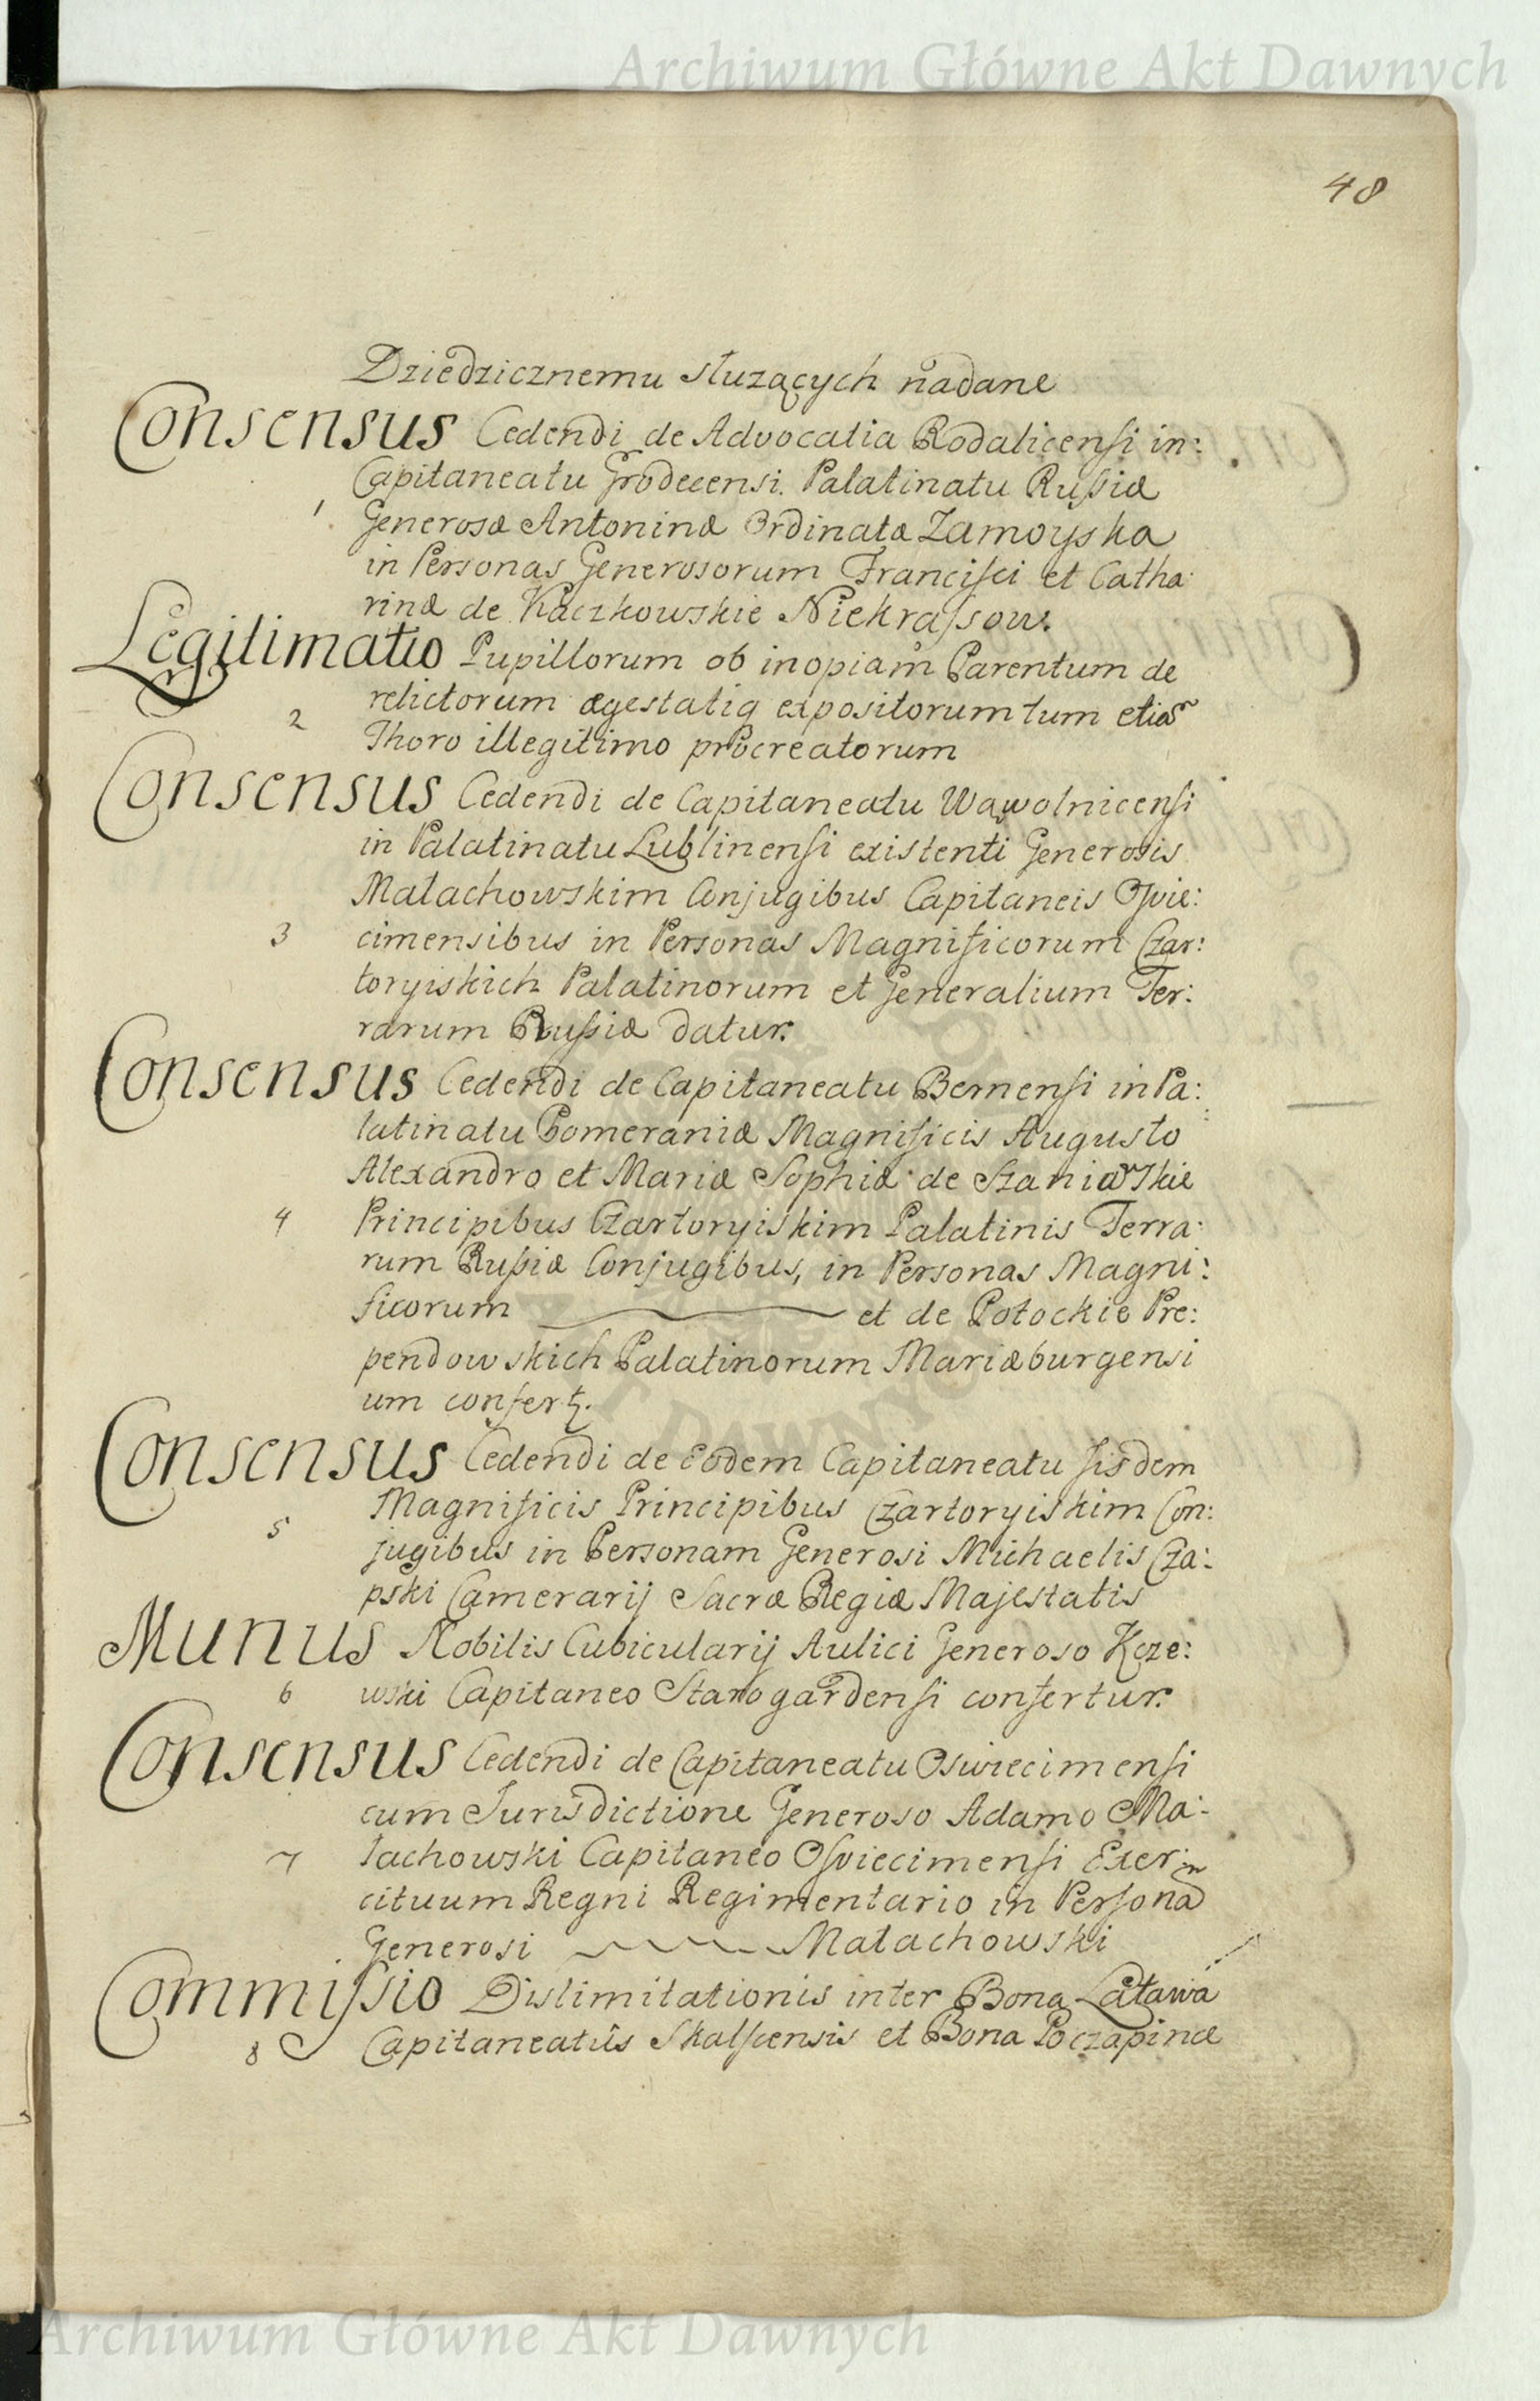 Archiwum Główne Akt Dawnych
48
Dziedzicznemu słuzących nadane
Consensus Cedendi de Advocatia Rodaticensi in:
Capitaneatu Grodecensi. Palatinatu Rußiæ
1
Generosæ Antoninæ Ordinatæ Zamoyska
in Personas Generosorum Francisci et Catha:
rinæ de Kaczkowskie Niekrassow.
Legitimatio Pupillorum ob inopiam Parentum de
relictorum ægestatiq expositorum tum etiam
2
Thoro illegitimo procreatorum
Consensus Cedendi de Capitaneatu Wąwolnicensi
in Palatinatu Lublinensi existenti Generosis
Małachowskim Conjugibus Capitaneis Osvie:
3 cimensibus in Personas Magnificorum Czar:
toryiskich Palatinorum et Generalium Ter:
rarum Rußiæ datur.
Consensus Cedendi de Capitaneatu Bernensi in Pa:
latinatu Pomeraniæ Magnificis Augusto
Alexandro et Mariæ Sophiæ de Szaniawskie
4 Principibus Czartoryiskim Palatinis Terra:
rum Rußiæ Conjugibus, in Personas Magni:
ficorum et de Potockie Pre:
pendowskich Palatinorum Mariæburgensi
um confert.
Consensus Cedendi de Eodem Capitaneatu iisdem
Magnificis Principibus Czartoryiskim Con:
5
jugibus in Personam Generosi Michaelis Cza:
pski Camerarij Sacræ Regiæ Majestatis
Munus Nobilis Cubicularij Aulici Generoso Kcze:
6 wski Capitaneo Starogardensi confertur.
Consensus Cedendi de Capitaneatu Oswiecimensi
cum Jurisdictione Generoso Adamo Ma:
7 łachowski Capitaneo Osviecimensi Exer:
cituum Regni Regimentario in Personam
Generosi Małachowski
Commissio Dislimitationis inter Bona Latawa
8 Capitaneatûs Skalscensis et Bona Poczapince
Archiwum Główne Akt Dawnych